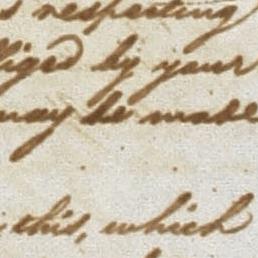 s respecting
liged by your
may be made
this, which